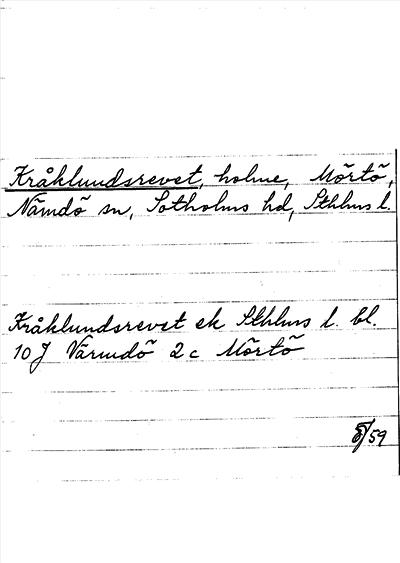 Kråklundsrevet, holme, Mörtö,
Nämdö sn, Sotholms hd, Sthlms l.
Kråklundsrevet ek Sthlms l. bl.
10 J Värmdö 2 c Mörtö
/59